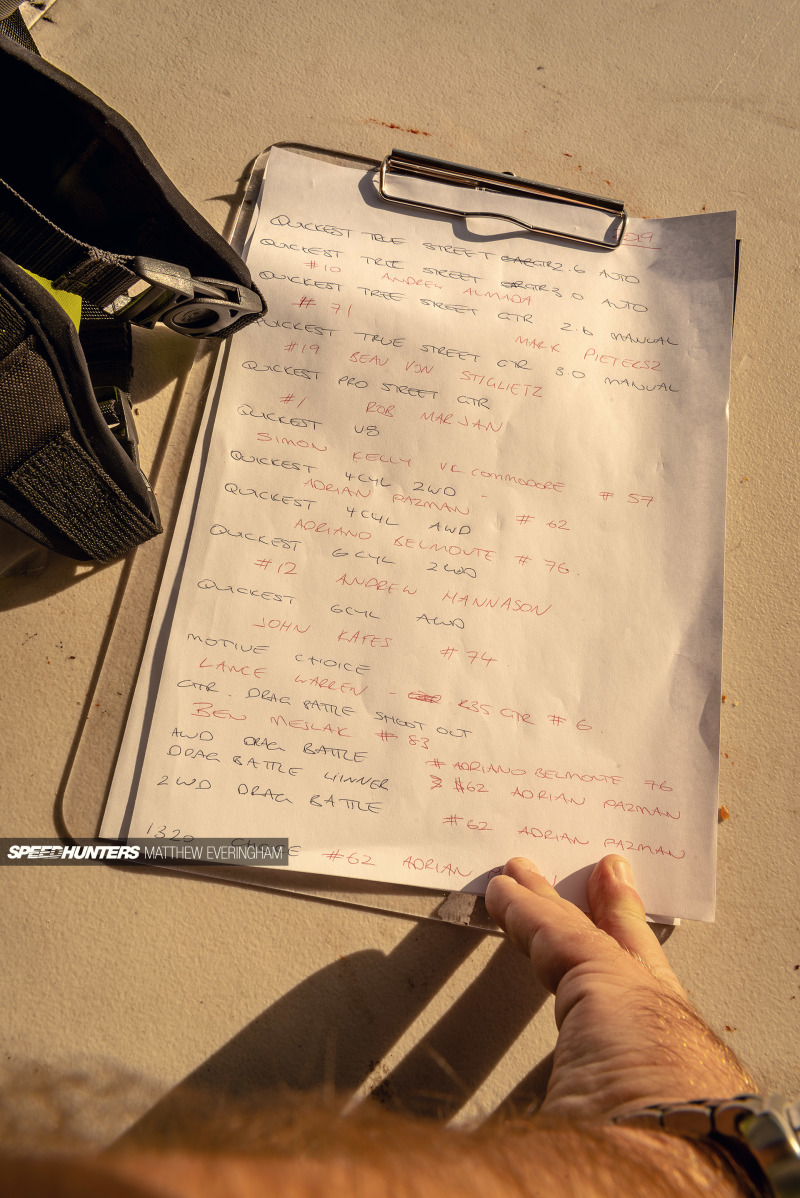 2019
QUICKEST TRUE STREET GTR 2.6 AUTO
QUICKEST TRUE STREET GTR 3.0 AUTO
#10 ANDREW ALMADA
QUICKEST TRUE STREET GTR 2.6 MANUAL
# 71 MARK PIETERSZ
QUICKEST TRUE STREET GTR 3.0 MANUAL
#19 BEAU VON STIGLIETZ
QUICKEST PRO STREET GTR
#1 ROB MARJAN
QUICKEST V8
SIMON KELLY VK COMMODORE # 57
QUICKEST 4CYL 2WD -
ADRIAN PAZMAN # 62
QUICKEST 4CYL AWD
ADRIANO BELMONTE # 76.
QUICKEST 6CYL 2WD
#12 ANDREW HANNASON
QUICKEST 6CYL AWD
JOHN KAFES # 74
MOTIVE CHOICE
LANCE WARREN - R35 GTR # 6.
GTR. DRAG BATTLE SHOOT OUT
BEN MESLAK # 83
AWD DRAG BATTLE # ADRIANO BELMONTE 76
DRAG BATTLE WINNER #62 ADRIAN PAZMAN
2WD DRAG BATTLE #62 ADRIAN PAZMAN
1320 CHOICE #62 ADRIAN
SPEEDHUNTERS MATTHEW EVERINGHAM